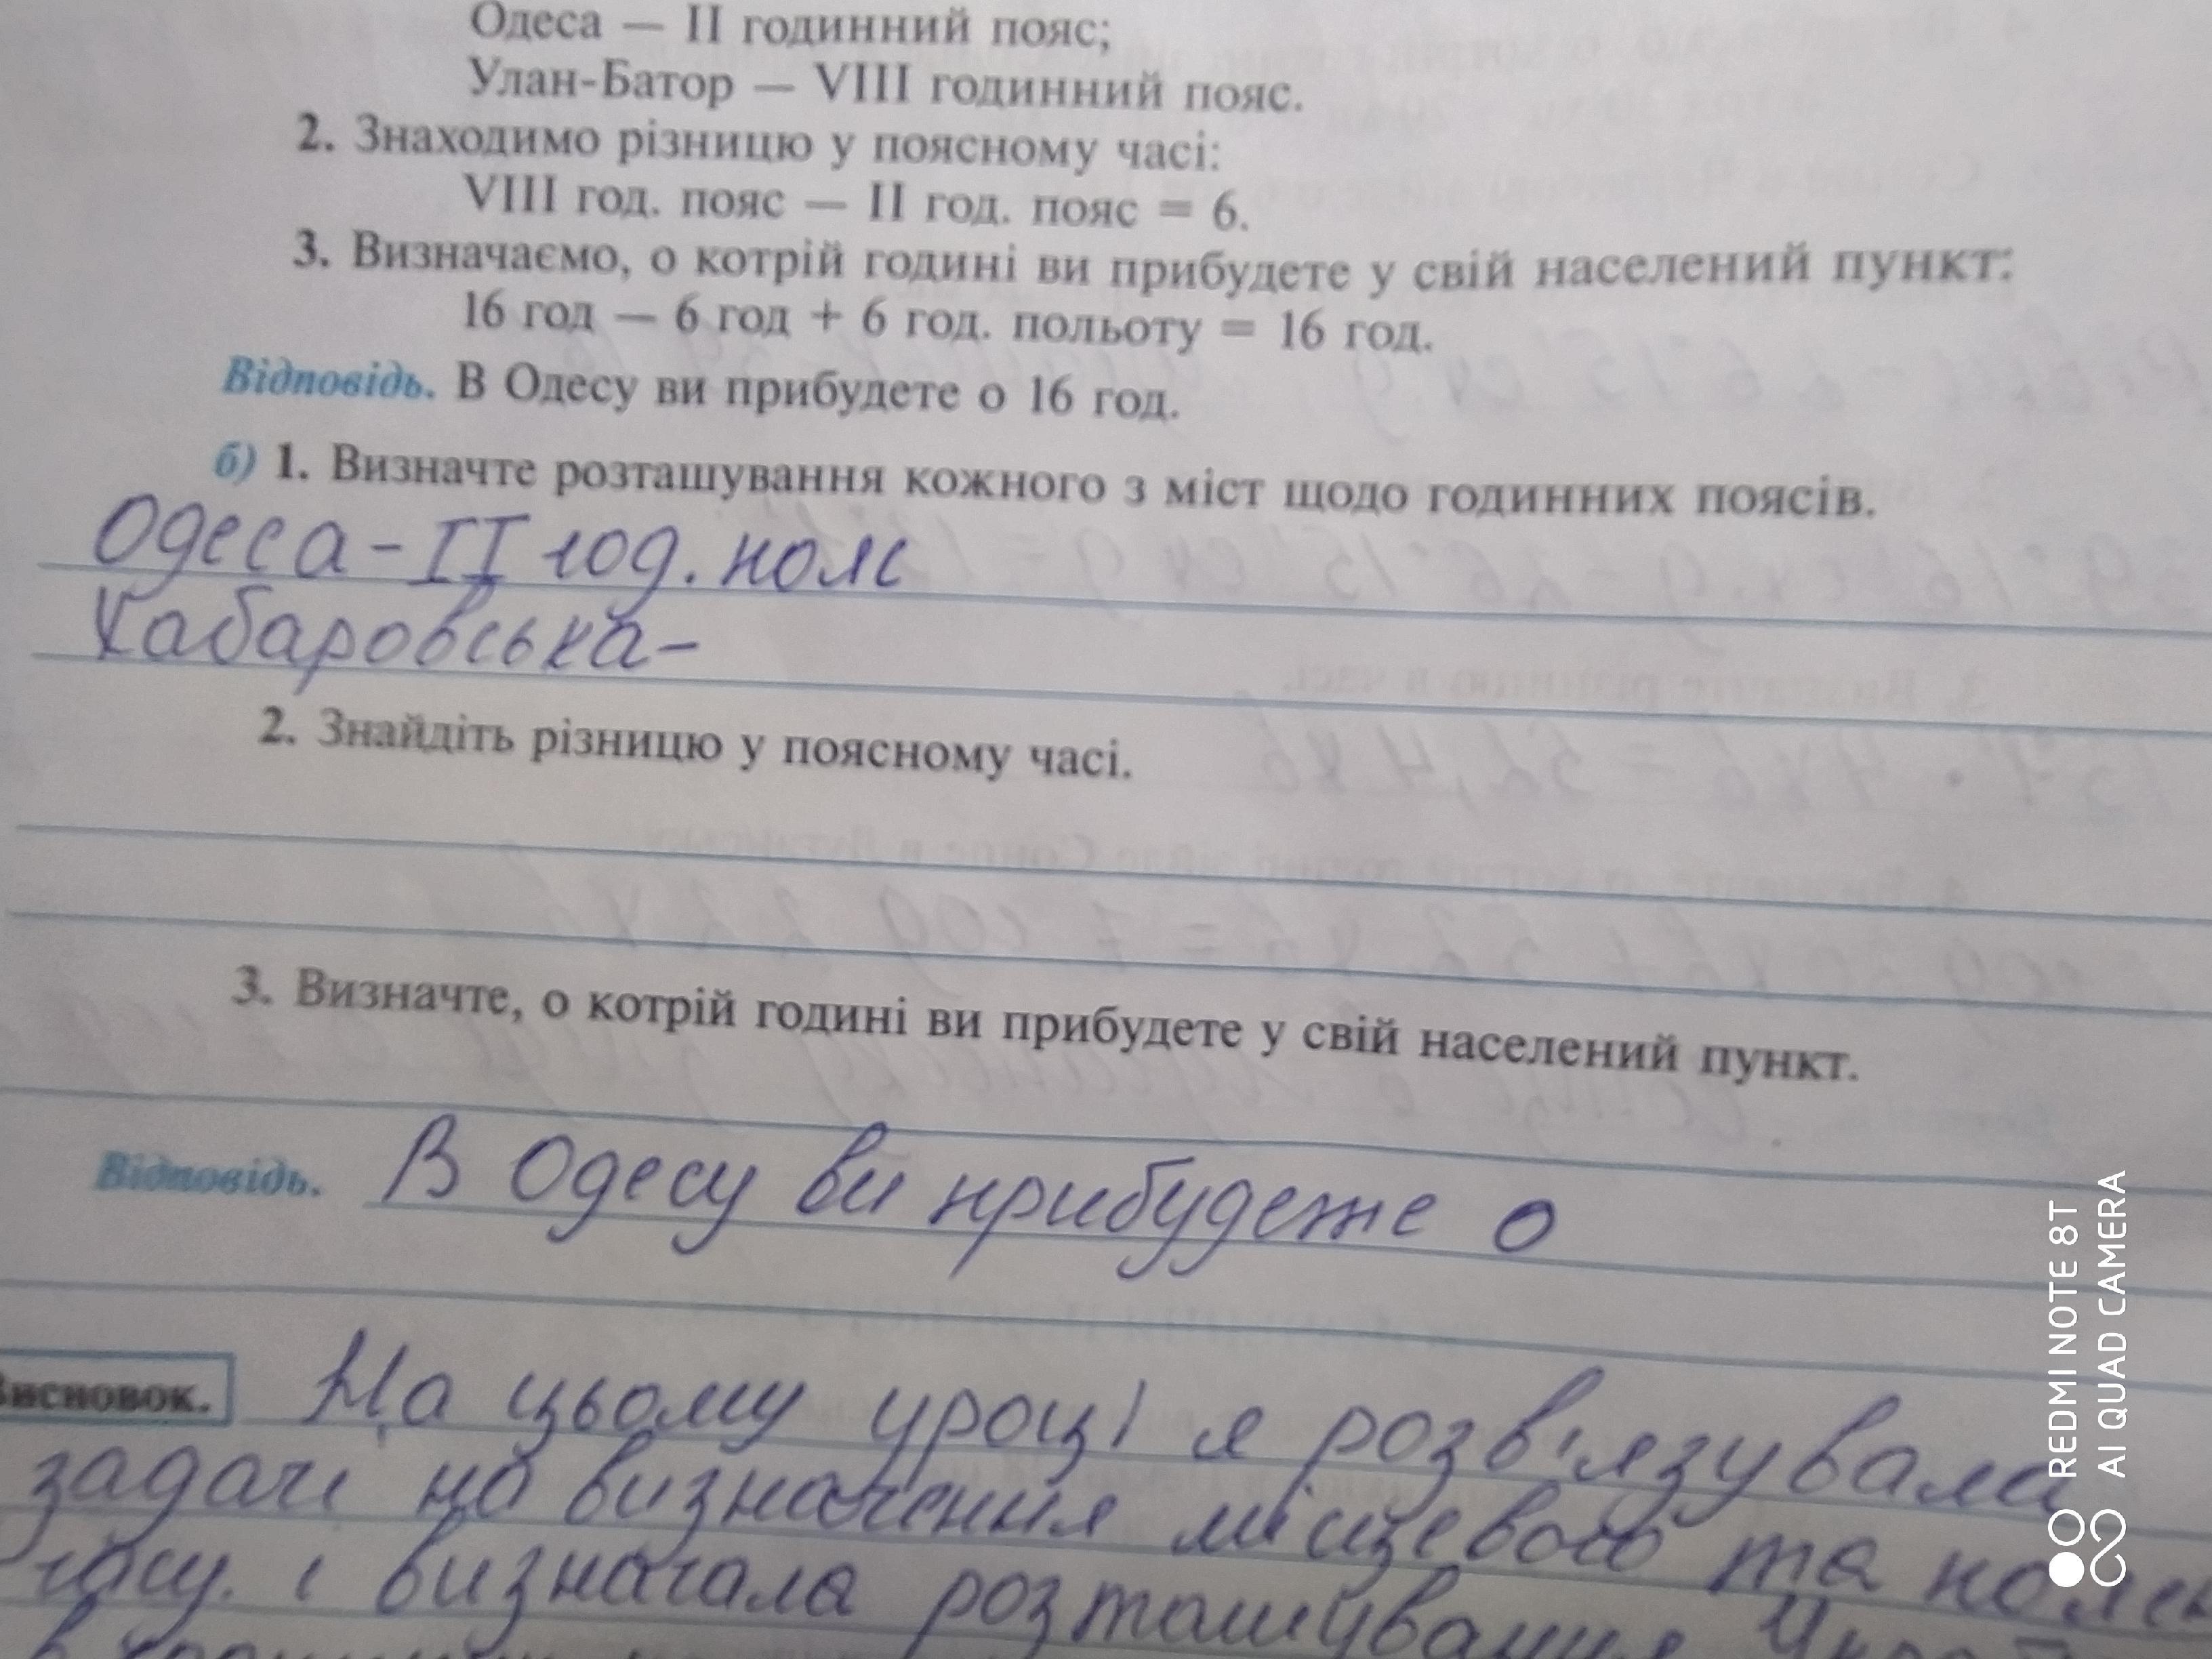 Одеса — II годинний пояс;
Улан-Батор — VIII годинний пояс.
2. Знаходимо різницю у поясному часі:
VIII год. пояс — II год. пояс = 6.
3. Визначаємо, о котрій годині ви прибудете у свій населений пункт:
16 год — 6 год + 6 год. польоту = 16 год.
Відповідь. В Одесу ви прибудете о 16 год.
б) 1. Визначте розташування кожного з міст щодо годинних поясів.
Одеса - II год. пояс
Хабаровська -
2. Знайдіть різницю у поясному часі.
3. Визначте, о котрій годині ви прибудете у свій населений пункт.
Відповідь. В Одесу ви прибудете о
Висновок. На цьому уроці я розв'язувала
задачі на визначення місцевого та
часу. і визначала розташування
REDMI NOTE 8T
AI QUAD CAMERA